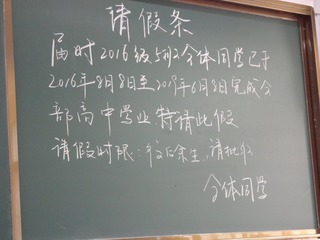 请假条
届时2016级5班全体同学已于
2016年8月8日至2019年6月8日完成全
部高中学业 特请此假
请假时限:往后余生,请批准
全体同学